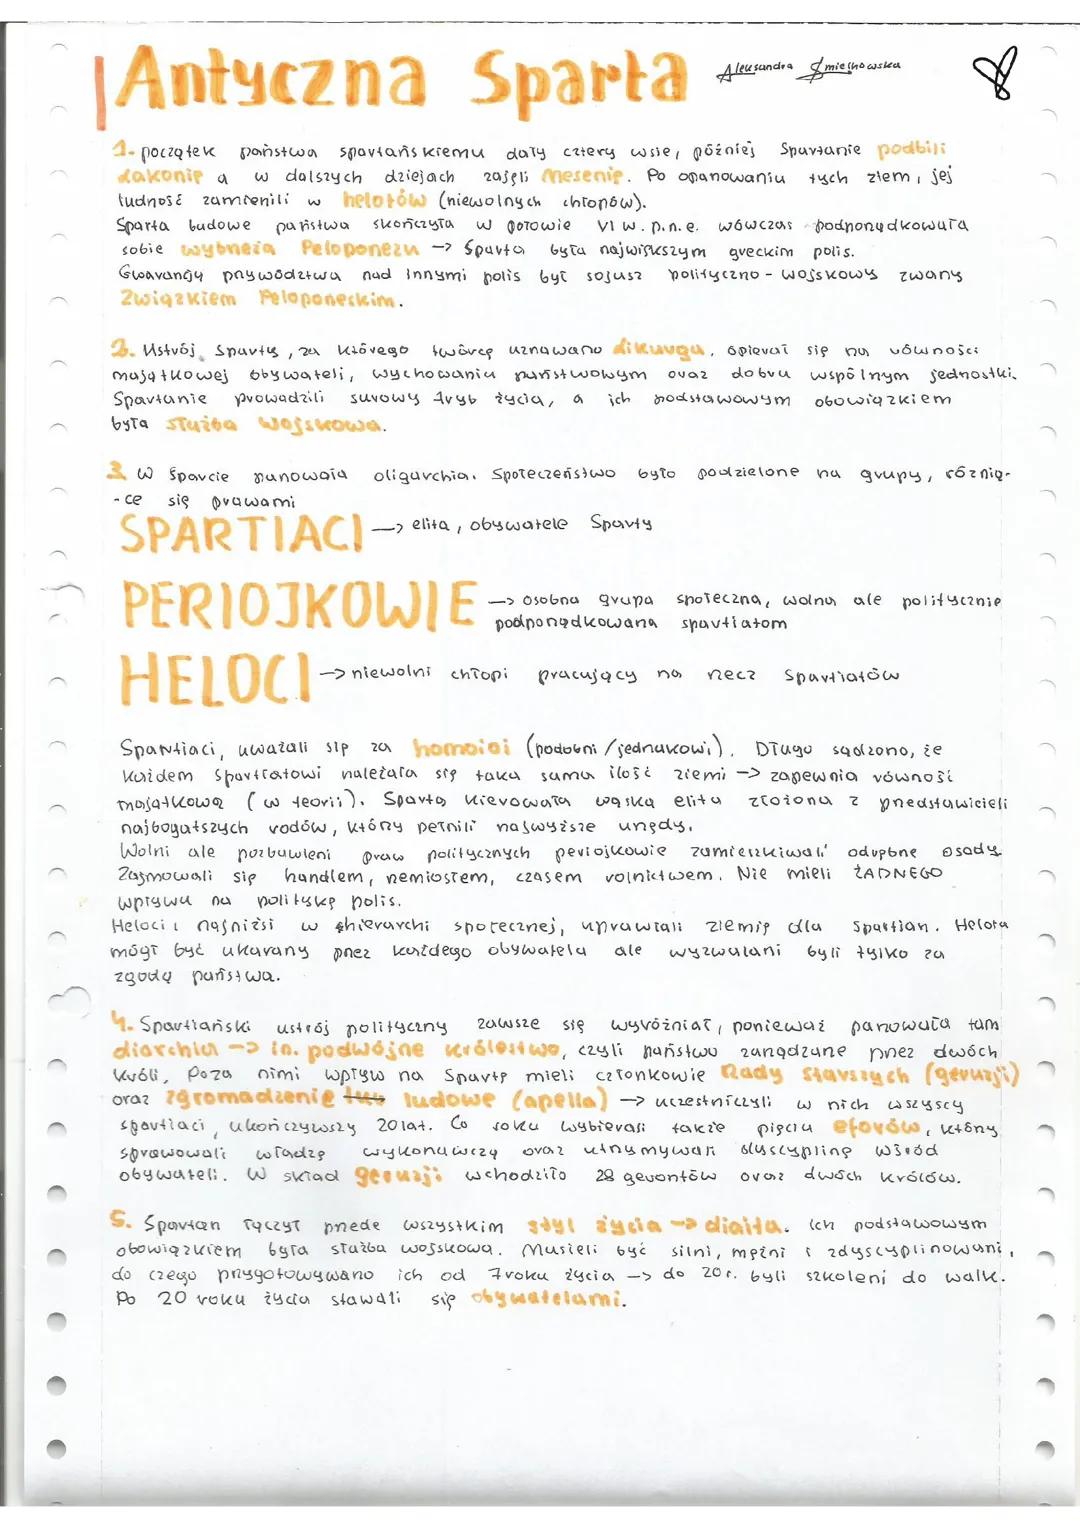 Antyczna Sparta
Aleksandra
1. początek państwa spartańskiemu dały cztery wsie, później Spartanie podbili
Lakonię a w dalszych dziejach zajęli Mesenię. Po opanowaniu tych ziem, jej
ludność zamienili w helotów (niewolnych chłopów).
Sparta budowe państwa skończyła w połowie VI w. p.n.e. wówczas podporządkowała
sobie wybrzeża Peloponezu -> Sparta była największym greckim polis.
Gwarancją przywództwa nad innymi polis był sojusz polityczno-wojskowy zwany
Związkiem Peloponeskim.
2. Ustrój Sparty, za którego twórcę uznawano Likurga, opierał się na równości
majątkowej obywateli, wychowaniu państwowym oraz dobru wspólnym jednostki.
Spartanie prowadzili surowy tryb życia, a ich podstawowym obowiązkiem
była służba wojskowa.
3. W Sparcie panowała oligarchia. Społeczeństwo było podzielone na grupy, różnią-
-ce się prawami
SPARTIACI -> elita, obywatele Sparty
PERIOJKOWIE -> osobna grupa społeczna, wolna ale politycznie
podporządkowana spartiatom
HELOCI -> niewolni chłopi pracujący na rzecz Spartiatów
Spartiaci, uważali się za homoioi (podobni/jednakowi). Długo sądzono, że
każdem Spartiatowi należała się taka sama ilość ziemi -> zapewnia równość
majątkową (w teorii). Spartą kierowała wąska elita złożona z przedstawicieli
najbogatszych rodów, którzy pełnili najwyższe urzędy.
Wolni ale pozbawieni praw politycznych periojkowie zamieszkiwali odrębne osady.
Zajmowali się handlem, rzemiosłem, czasem rolnictwem. Nie mieli ŻADNEGO
wpływu na politykę polis.
Heloci najniżsi w hierarchi społecznej, uprawiali ziemię dla Spartian. Helota
mógł być ukarany przez każdego obywatela ale wyzwalani byli tylko za
zgodą państwa.
4. Spartiański ustrój polityczny zawsze się wyróżniał, ponieważ panowała tam
diarchia -> in. podwójne królestwo, czyli państwo zarządzane przez dwóch
króli, Poza nimi wpływ na Spartę mieli członkowie Rady Starszych (geruzji)
oraz zgromadzenie ludowe (apella) -> uczestniczyli w nich wszyscy
spartiaci, ukończywszy 20 lat. Co roku wybierali także pięciu eforów, którzy
sprawowali władzę wykonawczą oraz utrzymywali dyscyplinę wśród
obywateli. W skład geruzji wchodziło 28 gerontów oraz dwóch królów.
5. Spartan łączył przede wszystkim styl życia -> diaita. Ich podstawowym
obowiązkiem była służba wojskowa. Musieli być silni, mężni i zdyscyplinowani,
do czego przygotowywano ich od 7 roku życia -> do 20 r. byli szkoleni do walk.
Po 20 roku życia stawali się obywatelami.